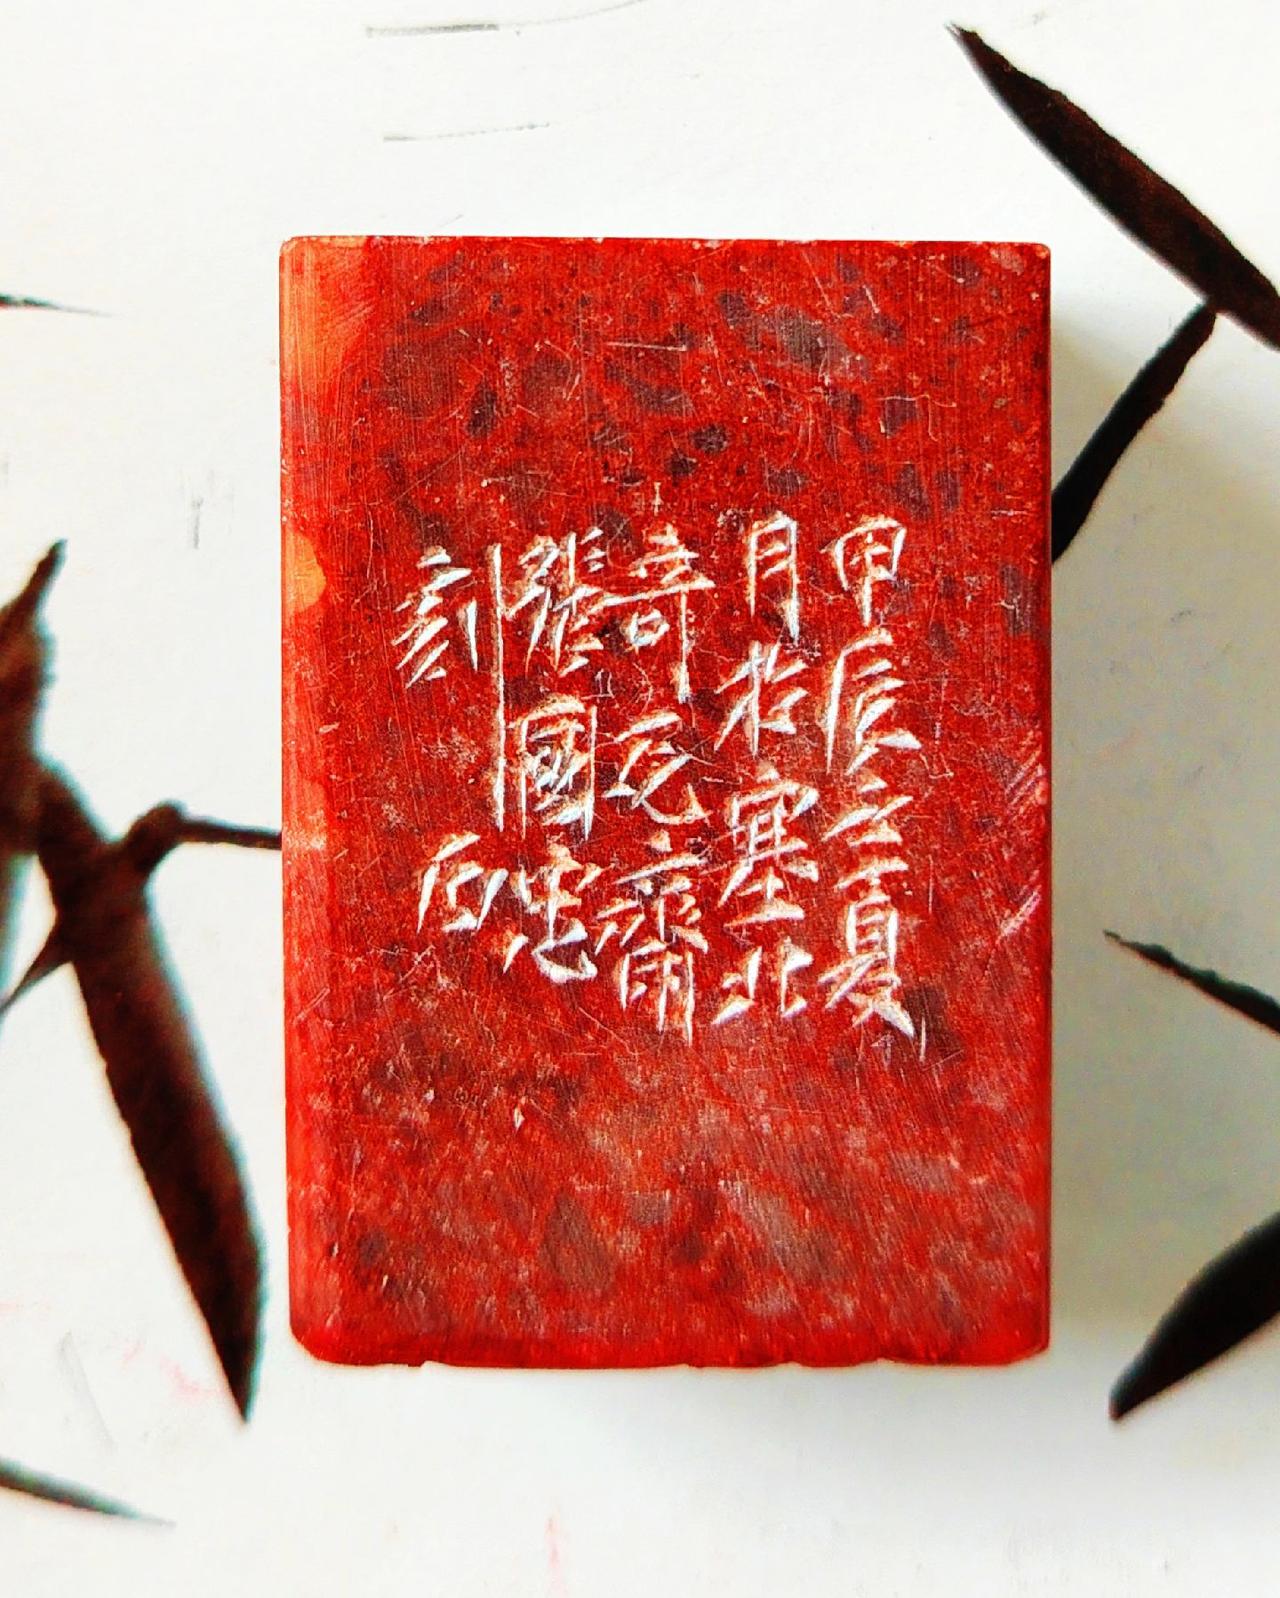 甲辰之夏
月於塞北
奇石齋
張國忠
刻石